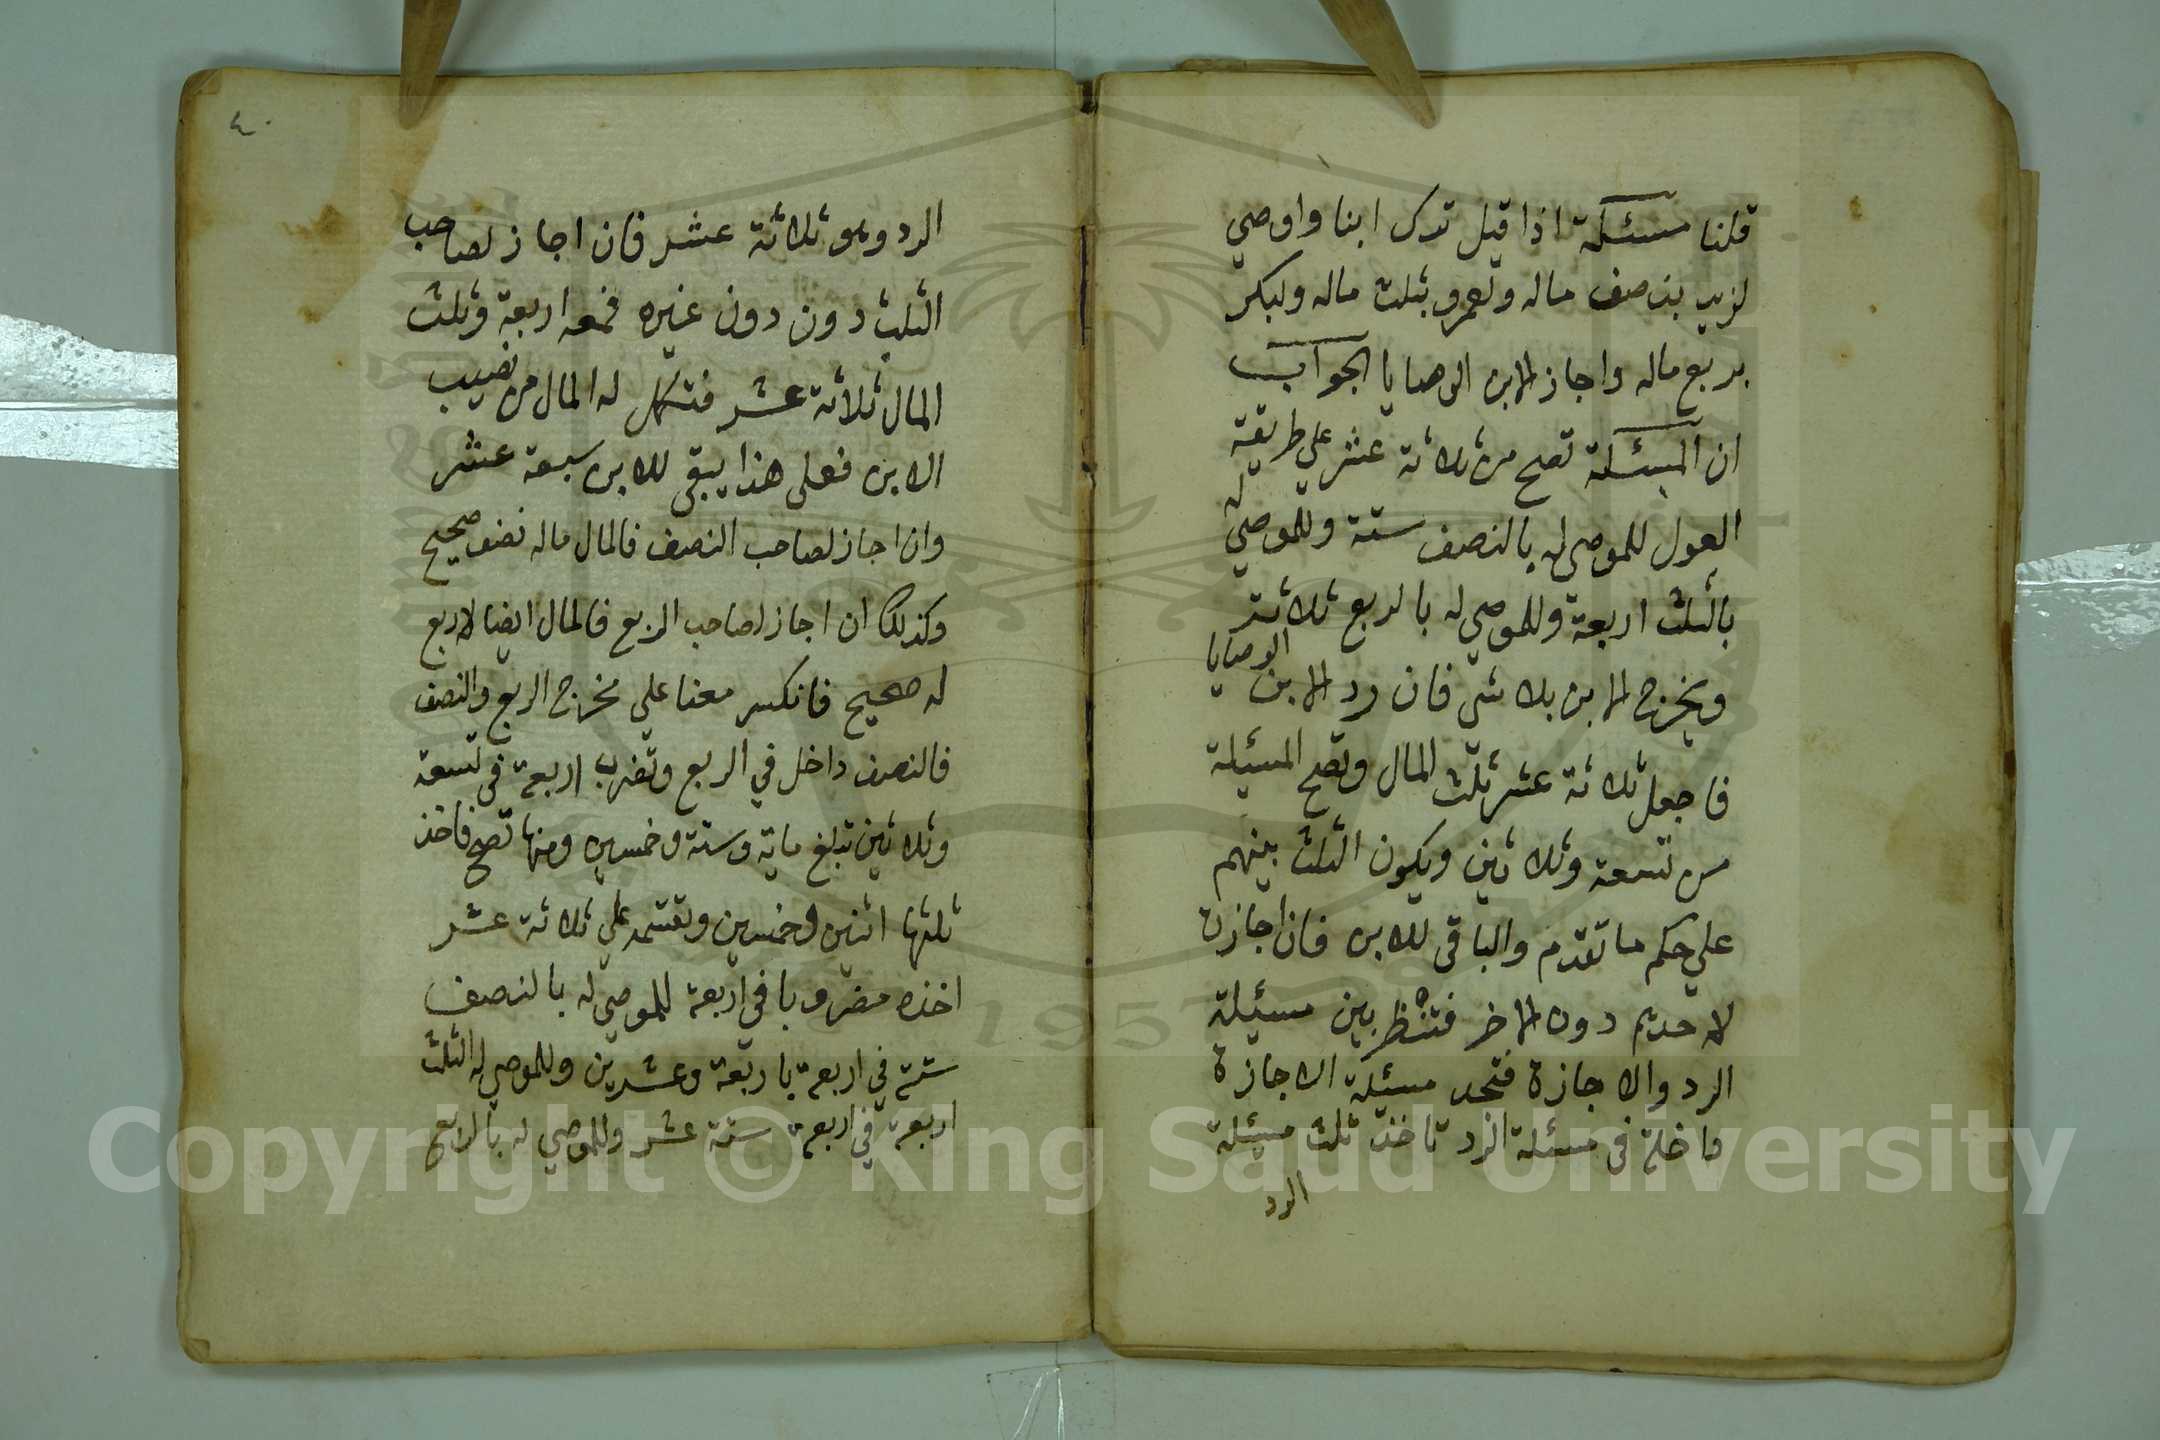 قلنا مسئلة اذا قيل ترك ابنا واوصي
لزيد بنصف ماله ولعمرو بثلث ماله ولبكر
بربع ماله واجاز الابن الوصايا الجواب
ان المسئلة تصح من ثلاثة عشر علي طريقة
العول للموصى له بالنصف ستة وللموصي له
بالثلث اربعة وللموصي له بالربع ثلاثة
ويخرج الابن بلا شي فان رد الابن الوصايا
فاجعل ثلاثة عشر ثلث المال وتصح المسئلة
من تسعة وثلاثين ويكون الثلث بينهم
علي حكم ما تقدم والباقي للابن فان اجازة
لاحديم دون الاخر فتنظر بين مسئلة
الرد والاجازة فتجد مسئلة الاجازة
داخلة في مسئلة الرد تاخذ ثلث مسئلة
الرد
٤٠
الرد وهو ثلاثة عشر فان اجاز لصاحب
الثلث دون دون غيره فمعه اربعة وثلث
المال ثلاثة عشر فتكمل له المال من نصيب
الابن فعلى هذا يبقى للابن سبعة عشر
وان اجاز لصاحب النصف فالمال ماله نصف صحيح
وكذلك ان اجاز لصاحب الربع فالمال ايضا لا ربع
له صحيح فانكسر معنا علي مخرج الربع والنصف
فالنصف داخل في الربع وتضرب اربعة في تسعة
وثلاثين تبلغ ماية وستة وخمسين ومنها تصح فاخذ
ثلثها اثنين وخمسين وتقسمه علي ثلاثة عشر
اخذه مضروبا في اربعة للموصي له بالنصف
ستة في اربعة باربعة وعشرين وللموصي له الثلث
اربعة في اربعة ستة عشر وللموصي له بالربع
Copyright © King Saud University
1957